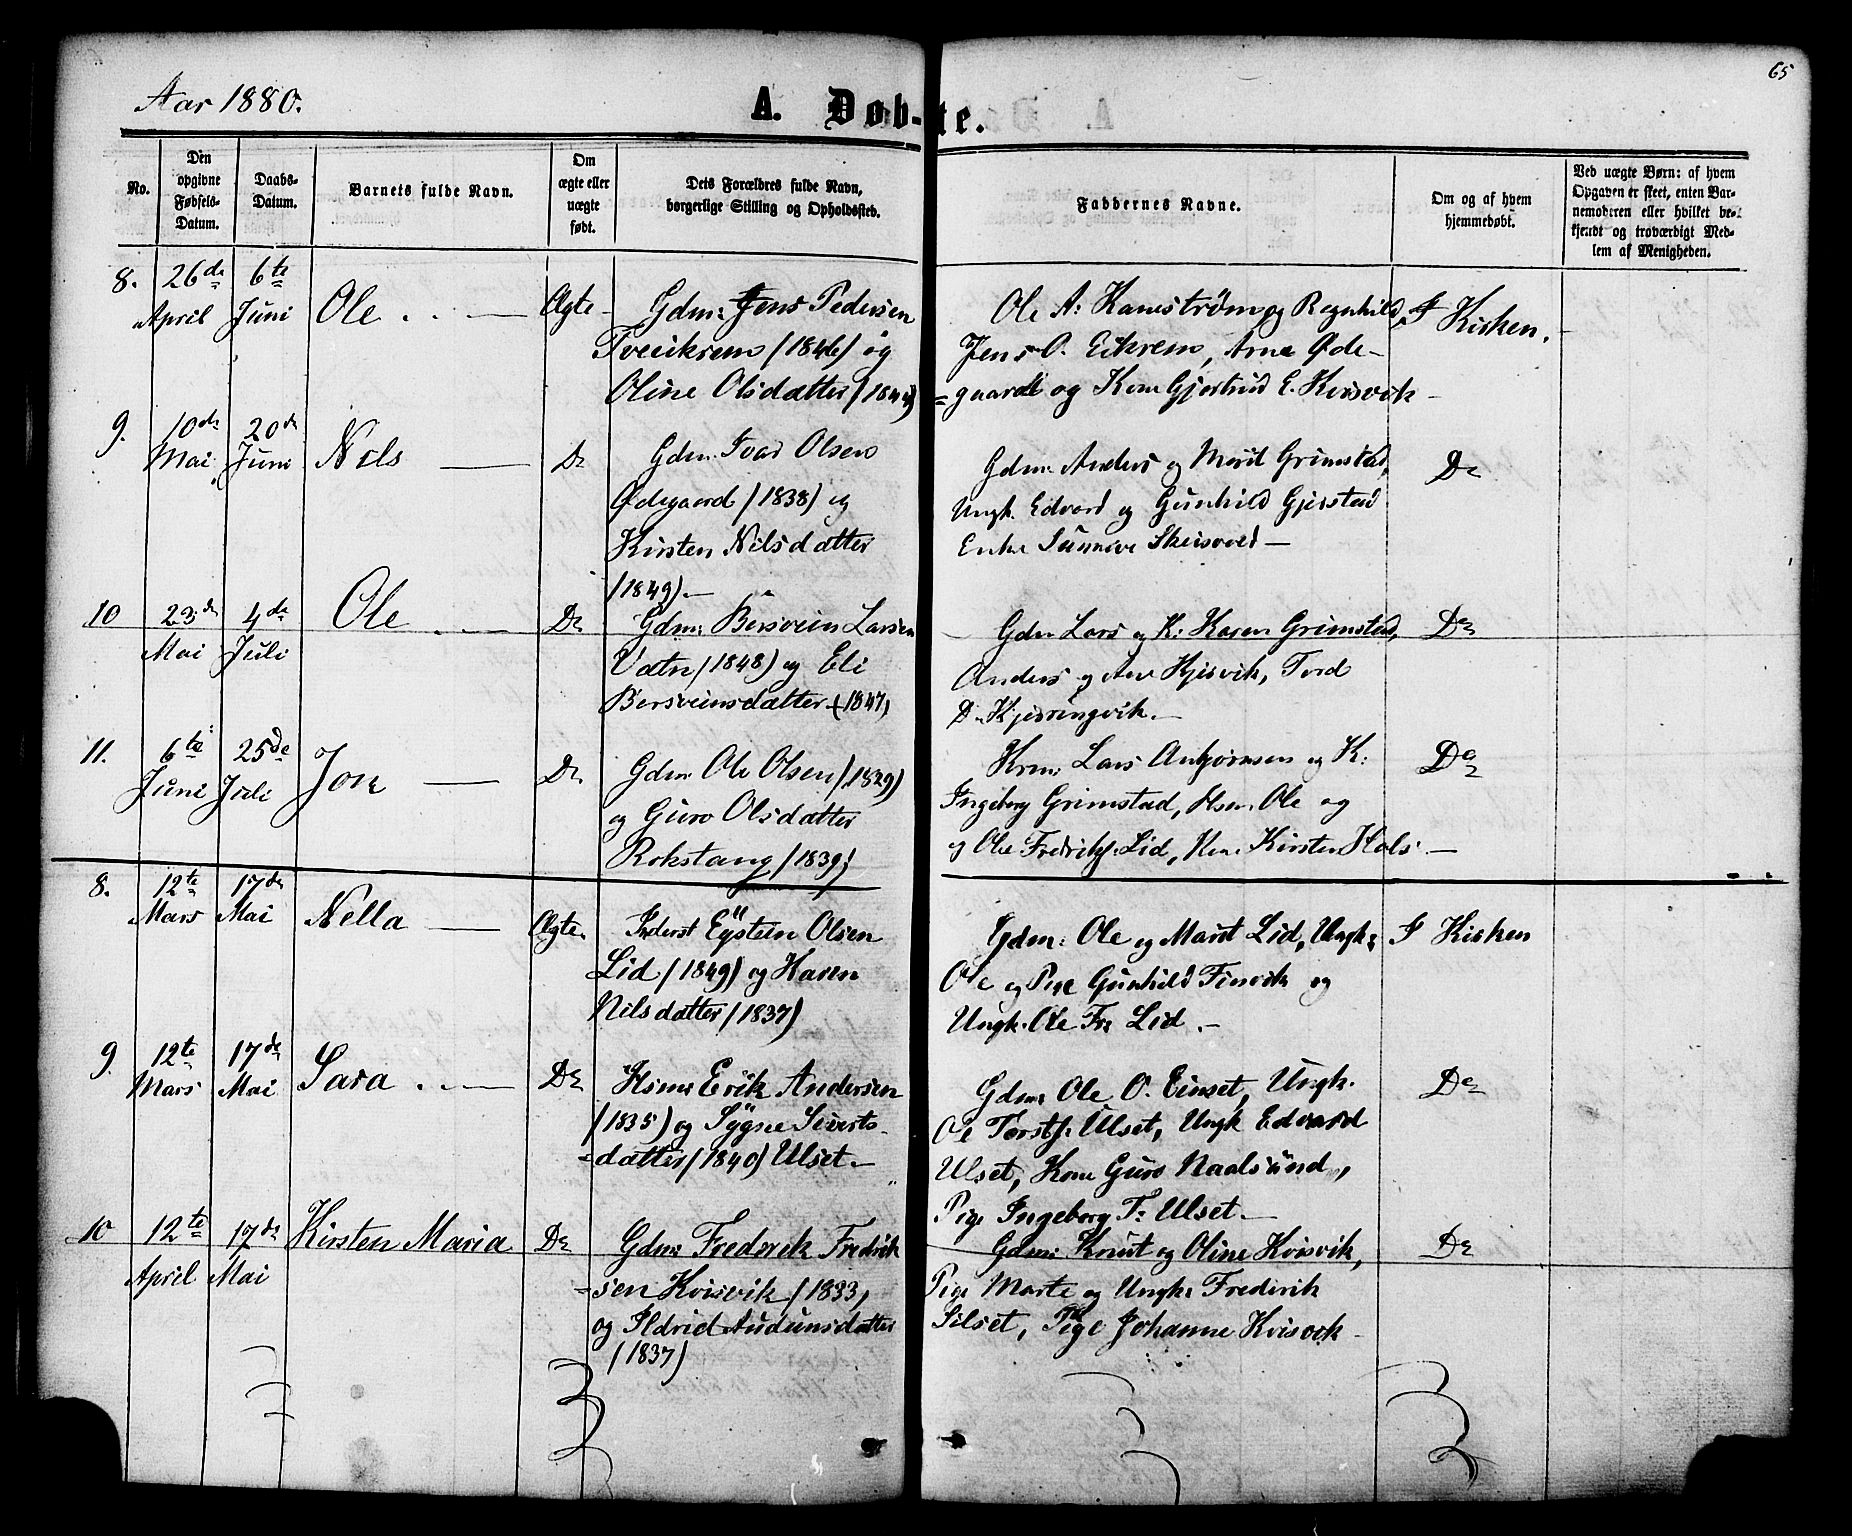 65
Aar 1880.
A. Døb-te.
No.
Den opgivne Fødsels-Datum.
Daabs-Datum.
Barnets fulde Navn.
Om ægte eller uægte født.
Dets Forældres fulde Navn, borgerlige Stilling og Opholdssted.
Faddernes Navne.
Om og af hvem hjemmedøbt.
Ved uægte Børn: af hvem Opgaven er skeet, enten Barnemoderen eller hvilket bekjendt og troværdigt Medlem af Menigheden.
8. 26de April 6te Juni Ole Ægte
Gdm: Jens Pedersen
Tveeikrem (1846) og
Oline Olsdatter (1844)
Ole A: Kanestrøm og Regnhild,
Jens O. Eikrem, Arne Øde-
=gaardt og Kone Gjertrud E. Kvisvik
I Kirken.
9. 10de Mai 20de Juni Nils Do
Gdm. Ivar Olsen
Ødegaard (1838) og
Kirsten Nilsdatter
(1849).
Gdm: Anders og Marit Grimstad,
Ungk. Edvard og Gunhild Gjerstad
Enke Sunneve
Do
10 23de Mai 4de Juli Ole Do
Gdm: Bersvein Larsen
Vatn (1848) og Eli
Bersveinsdatter (1847)
Gdm Lars og K: Karen Grimstad,
Anders og Ane Kjisvik, Tord
D. Kjørringvik.
Do
11. 6te Juni 25de Juli Jon Do
Gdm Ole Olsen (1829)
og Guro Olsdatter
Rokstang (1839)
Krm: Lars Anbjørnsen og K:
Ingeborg Grimstad, Hsm. Ole og
og Ole Fredriks. Lid, Kirsten Hals.
Do
8. 12te Mars 17de Mai Nella Ægte.
Inderst Eÿstein Olsen
Lid (1849) og Karen
Nilsdatter (1837)
Gdm: Ole og Marit Lid, Ungk:
Ole og Pige Gunhild Finvik og
Ungk. Ole Fr: Lid.
I Kirken
9. 12te Mars 17de Mai Sara Do
Hsm: Erik Andersen
(1835) og Sÿgne Siverts-
=datter (1840) Ulset.
Gdm: Ole O. Einset, Ungk.
Ole Torstf. Ulset, Ungk Edvard
Ulset, Kone Guro Naalsund,
Pige Ingeborg T: Ulset.
Do
10 12te April 17de Mai Kirsten Maria Do
Gdm: Frederik Fredrik
=sen Kvisvik (1833)
og Ildrid Audunsdatter
(1837)
Gdm: Knut og Oline Kvisvik,
Pige Marte og Ungk: Frederik
Silset, Pige Johanne Kvisvik
Do